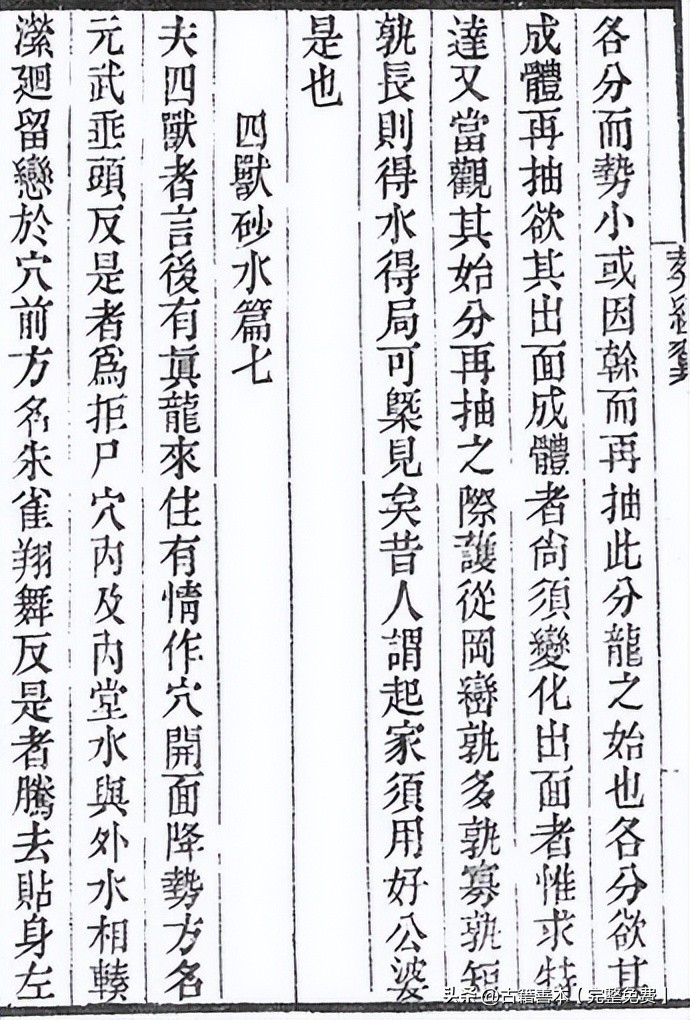 各分而勢小或因榦而再抽此分龍之始也各分欲其
成體再抽欲其出面成體者尙須變化出面者惟求特
達又當觀其始分再抽之際護從岡巒孰多孰寡孰短
孰長則得水得局可槩見矣昔人謂起家須用好公婆
是也
四獸砂水篇七
夫四獸者言後有眞龍來住有情作穴開面降勢方名
元武垂頭反是者爲拒尸穴内及内堂水與外水相輳
瀠廻留戀於穴前方名朱雀翔舞反是者騰去貼身左
葬經翼
头条@古籍善本【完整免费】